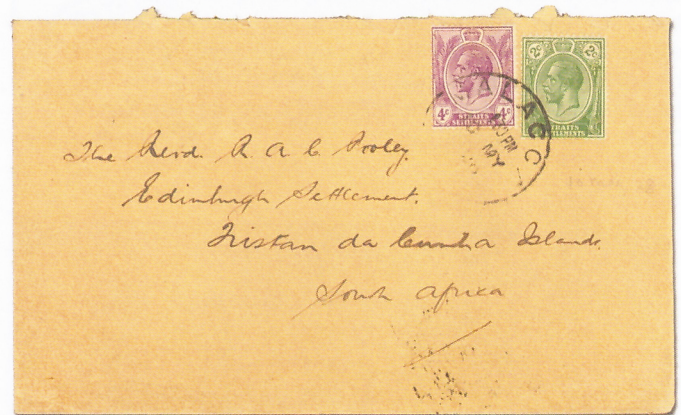 4c 4c
STRAITS
SETTLEMENTS
2c 2c
STRAITS
SETTLEMENTS
MALACC
PM
MY
The Revd. R. A. C. Pooley.
Edinburgh Settlement.
Tristan da Cunha Islands.
South Africa